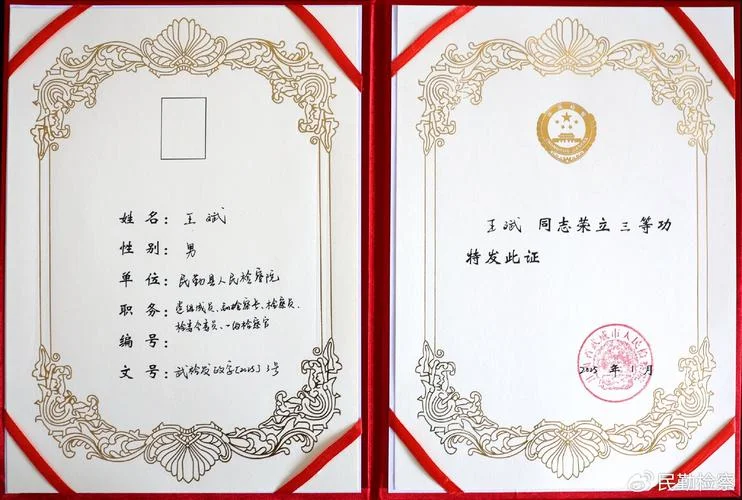 姓名：王斌
性别：男
单位：民勤县人民检察院
职务：党组成员、副检察长、检察员、
检委会委员、一级检察官
编号：
文号：武检发政字[2025]3号
王斌 同志荣立三等功
特发此证
甘肃省武威市人民检察院
2025年1月
民勤检察